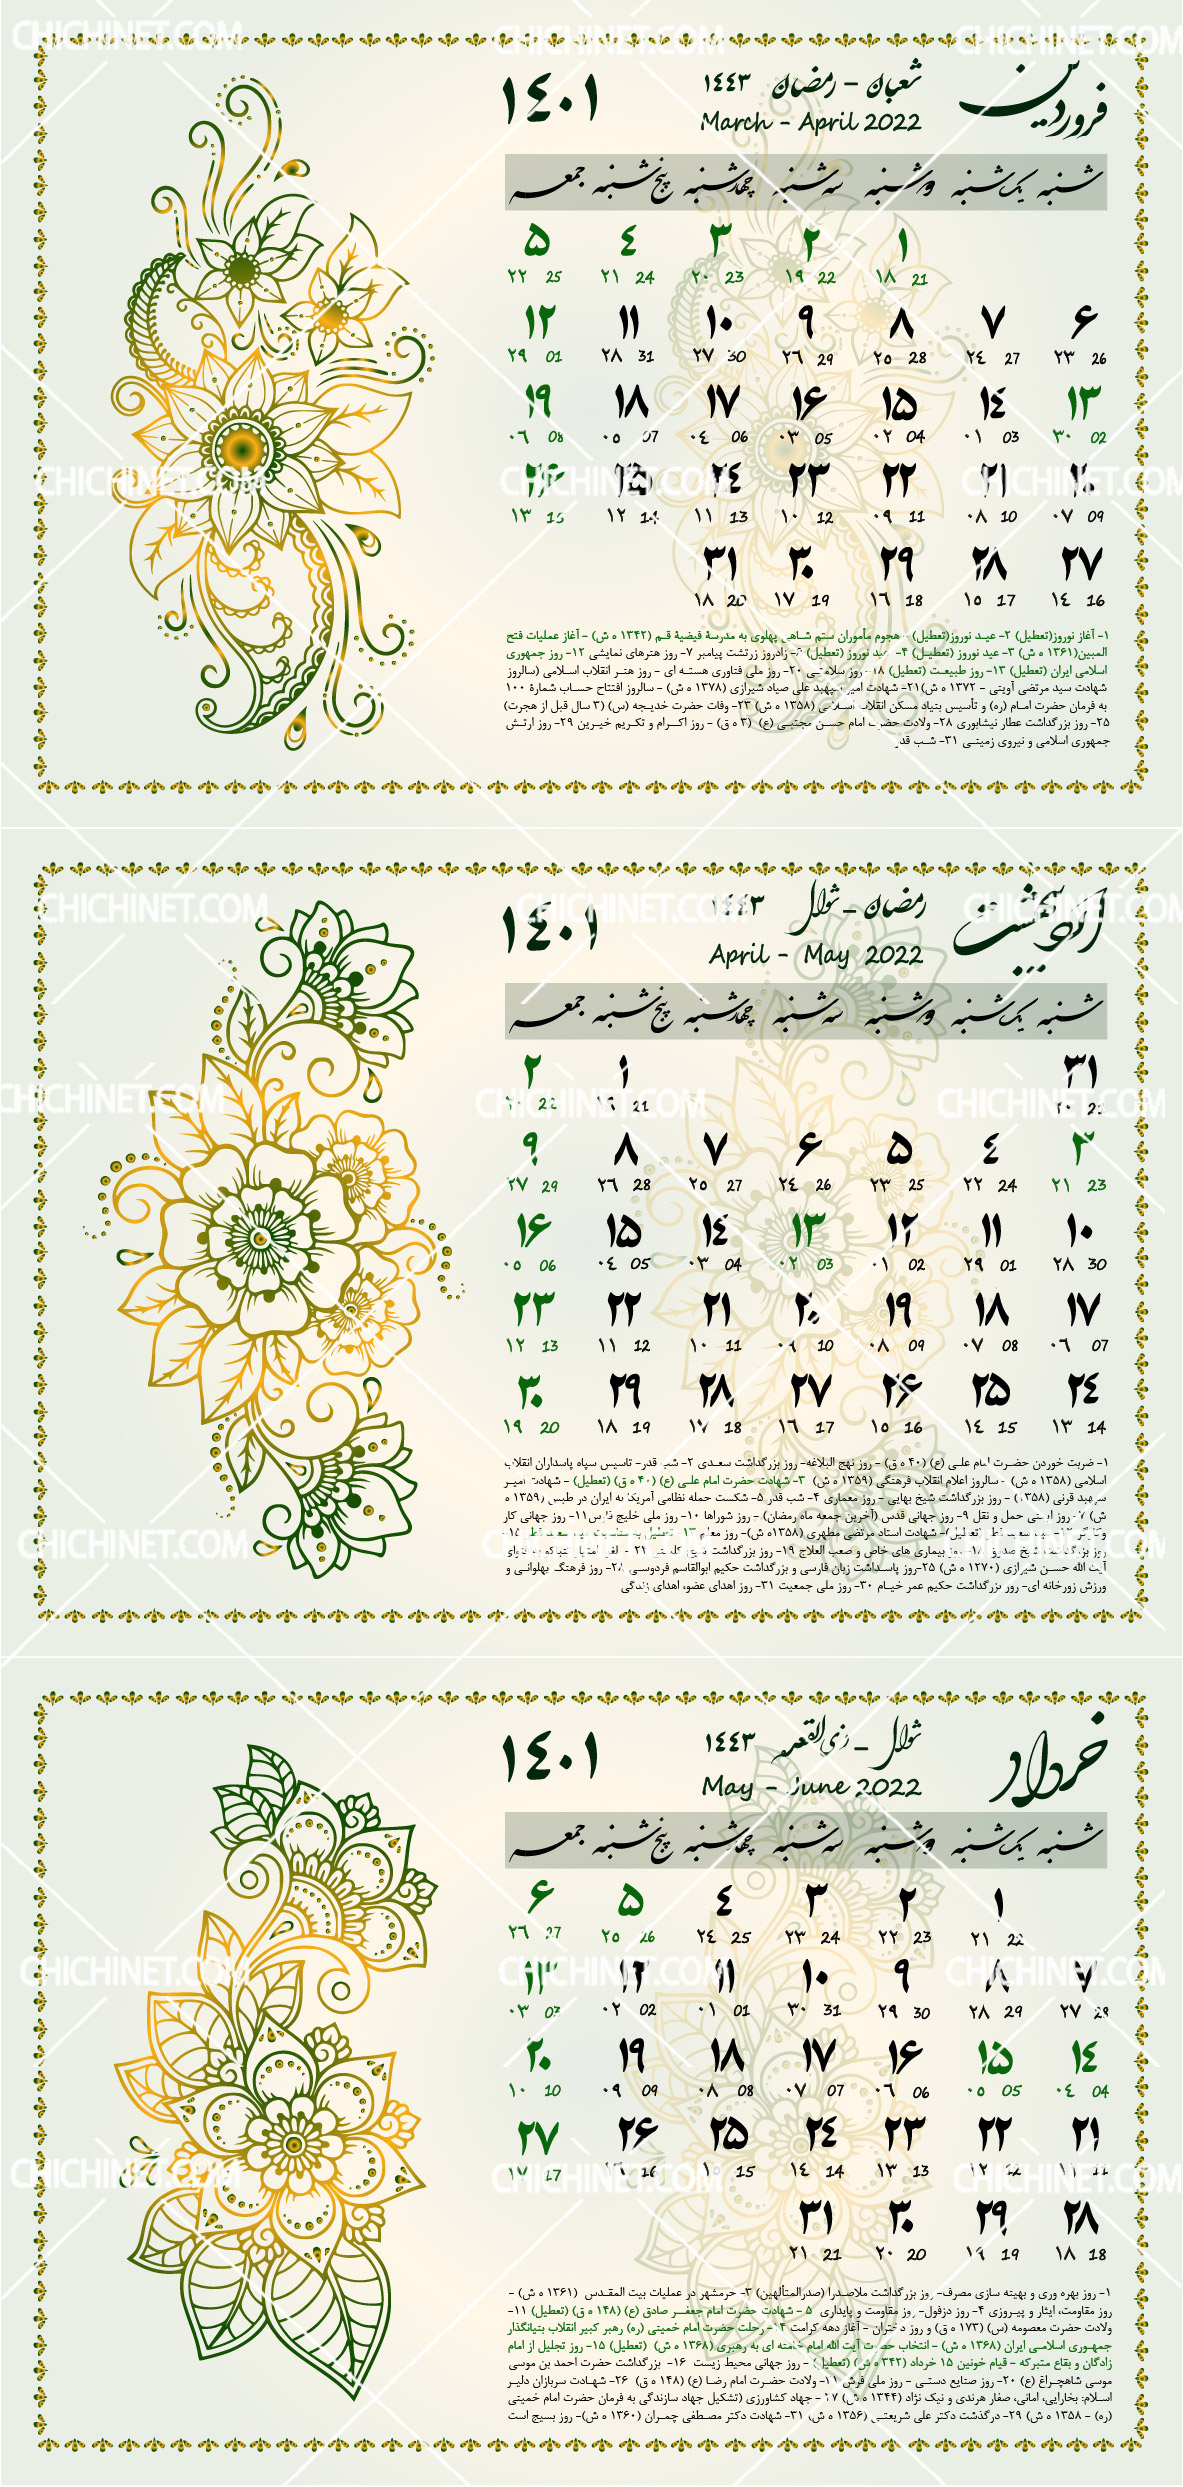 CHICHINET.COM CHICHINET.COM CHICHINET.COM
فروردین
شعبان - رمضان ۱۴۴۳
March - April 2022
۱۴۰۱
شنبه یکشنبه دوشنبه سه شنبه چهارشنبه پنج شنبه جمعه
۱ ۲ ۳ ۴ ۵
۱۸ 21 ۱۹ 22 ۲۰ 23 ۲۱ 24 ۲۲ 25
۶ ۷ ۸ ۹ ۱۰ ۱۱ ۱۲
۲۳ 26 ۲۴ 27 ۲۵ 28 ۲۶ 29 ۲۷ 30 ۲۸ 31 ۲۹ 01
۱۳ ۱۴ ۱۵ ۱۶ ۱۷ ۱۸ ۱۹
۳۰ 02 ۰۱ 03 ۰۲ 04 ۰۳ 05 ۰۴ 06 ۰۵ 07 ۰۶ 08
CHICHINET.COM CHICHINET.COM CHICHINET.COM
۲۰ ۲۱ ۲۲ ۲۳ ۲۴ ۲۵ ۲۶
۰۷ 09 ۰۸ 10 ۰۹ 11 ۱۰ 12 ۱۱ 13 ۱۲ 14 ۱۳ 15
۲۷ ۲۸ ۲۹ ۳۰ ۳۱
۱۴ 16 ۱۵ 17 ۱۶ 18 ۱۷ 19 ۱۸ 20
۱- آغاز نوروز(تعطیل) ۲- عید نوروز(تعطیل) - هجوم مأموران ستم شاهی پهلوی به مدرسهٔ فیضیهٔ قم (۱۳۴۲ ه ش) - آغاز عملیات فتح
المبین(۱۳۶۱ ه ش) ۳- عید نوروز (تعطیل) ۴- عید نوروز (تعطیل) ۶- زادروز زرتشت پیامبر ۷- روز هنرهای نمایشی ۱۲- روز جمهوری
اسلامی ایران (تعطیل) ۱۳- روز طبیعت (تعطیل) ۱۸- روز سلامتی ۲۰- روز ملی فناوری هسته ای - روز هنر انقلاب اسلامی (سالروز
شهادت سید مرتضی آوینی - ۱۳۷۲ ه ش)۲۱- شهادت امیر سپهبد علی صیاد شیرازی (۱۳۷۸ ه ش) - سالروز افتتاح حساب شمارهٔ ۱۰۰
به فرمان حضرت امام (ره) و تأسیس بنیاد مسکن انقلاب اسلامی (۱۳۵۸ ه ش) ۲۳- وفات حضرت خدیجه (س) (۳ سال قبل از هجرت)
۲۵- روز بزرگداشت عطار نیشابوری ۲۸- ولادت حضرت امام حسن مجتبی (ع) (۳ ه ق) - روز اکرام و تکریم خیرین ۲۹- روز ارتش
جمهوری اسلامی و نیروی زمینی ۳۱- شب قدر
CHICHINET.COM CHICHINET.COM CHICHINET.COM
اردیبهشت
رمضان - شوال ۱۴۴۳
April - May 2022
۱۴۰۱
شنبه یکشنبه دوشنبه سه شنبه چهارشنبه پنج شنبه جمعه
۳۱ ۱ ۲
۲۰ 21 ۱۹ 21 ۲۰ 22
CHICHINET.COM CHICHINET.COM CHICHINET.COM
۳ ۴ ۵ ۶ ۷ ۸ ۹
۲۱ 23 ۲۲ 24 ۲۳ 25 ۲۴ 26 ۲۵ 27 ۲۶ 28 ۲۷ 29
۱۰ ۱۱ ۱۲ ۱۳ ۱۴ ۱۵ ۱۶
۲۸ 30 ۲۹ 01 ۰۱ 02 ۰۲ 03 ۰۳ 04 ۰۴ 05 ۰۵ 06
۱۷ ۱۸ ۱۹ ۲۰ ۲۱ ۲۲ ۲۳
۰۶ 07 ۰۷ 08 ۰۸ 09 ۰۹ 10 ۱۰ 11 ۱۱ 12 ۱۲ 13
۲۴ ۲۵ ۲۶ ۲۷ ۲۸ ۲۹ ۳۰
۱۳ 14 ۱۴ 15 ۱۵ 16 ۱۶ 17 ۱۷ 18 ۱۸ 19 ۱۹ 20
۱- ضربت خوردن حضرت امام علی (ع) (۴۰ ه ق) - روز نهج البلاغه- روز بزرگداشت سعدی ۲- شب قدر- تاسیس سپاه پاسداران انقلاب
اسلامی (۱۳۵۸ ه ش) - سالروز اعلام انقلاب فرهنگی (۱۳۵۹ ه ش) ۳- شهادت حضرت امام علی (ع) (۴۰ ه ق) (تعطیل) - شهادت امیر
سپهبد قرنی (۱۳۵۸) - روز بزرگداشت شیخ بهایی - روز معماری ۴- شب قدر ۵- شکست حمله نظامی آمریکا به ایران در طبس (۱۳۵۹ ه
ش) ۷- روز ایمنی حمل و نقل ۹- روز جهانی قدس (آخرین جمعه ماه رمضان) - روز شوراها ۱۰- روز ملی خلیج فارس۱۱- روز جهانی کار
وکارگر ۱۳- عید سعید فطر (تعطیل)- شهادت استاد مرتضی مطهری (۱۳۵۸ه ش)- روز معلم ۱۴- تعطیل به مناسبت عید سعید فطر ۱۵-
روز بزرگداشت شیخ صدوق ۱۸- روز بیماری های خاص و صعب العلاج ۱۹- روز بزرگداشت شیخ کلینی ۲۴ - لغو امتیاز تنباکو به فتوای
آیت الله حسن شیرازی (۱۲۷۰ ه ش) ۲۵-روز پاسداشت زبان فارسی و بزرگداشت حکیم ابوالقاسم فردوسی ۲۸- روز فرهنگ پهلوانی و
ورزش زورخانه ای- روز بزرگداشت حکیم عمر خیام ۳۰- روز ملی جمعیت ۳۱- روز اهدای عضو، اهدای زندگی
CHICHINET.COM CHICHINET.COM CHICHINET.COM
خرداد
شوال - ذی القعده ۱۴۴۳
May - June 2022
۱۴۰۱
شنبه یکشنبه دوشنبه سه شنبه چهارشنبه پنج شنبه جمعه
۱ ۲ ۳ ۴ ۵ ۶
۲۱ 22 ۲۲ 23 ۲۳ 24 ۲۴ 25 ۲۵ 26 ۲۶ 27
CHICHINET.COM CHICHINET.COM CHICHINET.COM
۷ ۸ ۹ ۱۰ ۱۱ ۱۲ ۱۳
۲۷ 28 ۲۸ 29 ۲۹ 30 ۳۰ 31 ۰۱ 01 ۰۲ 02 ۰۳ 03
۱۴ ۱۵ ۱۶ ۱۷ ۱۸ ۱۹ ۲۰
۰۴ 04 ۰۵ 05 ۰۶ 06 ۰۷ 07 ۰۸ 08 ۰۹ 09 ۱۰ 10
۲۱ ۲۲ ۲۳ ۲۴ ۲۵ ۲۶ ۲۷
۱۱ 11 ۱۲ 12 ۱۳ 13 ۱۴ 14 ۱۵ 15 ۱۶ 16 ۱۷ 17
CHICHINET.COM CHICHINET.COM CHICHINET.COM
۲۸ ۲۹ ۳۰ ۳۱
۱۸ 18 ۱۹ 19 ۲۰ 20 ۲۱ 21
۱- روز بهره وری و بهینه سازی مصرف- روز بزرگداشت ملاصدرا (صدرالمتألهین) ۳- خرمشهر در عملیات بیت المقدس (۱۳۶۱ ه ش) -
روز مقاومت، ایثار و پیروزی ۴- روز دزفول- روز مقاومت و پایداری ۵ - شهادت حضرت امام جعفر صادق (ع) (۱۴۸ ه ق) (تعطیل) ۱۱-
ولادت حضرت معصومه (س) (۱۷۳ ه ق) و روز دختران - آغاز دهه کرامت ۱۴- رحلت حضرت امام خمینی (ره) رهبر کبیر انقلاب بنیانگذار
جمهوری اسلامی ایران (۱۳۶۸ ه ش) - انتخاب حضرت آیت الله امام خامنه ای به رهبری (۱۳۶۸ ه ش) (تعطیل) ۱۵- روز تجلیل از امام
زادگان و بقاع متبرکه - قیام خونین ۱۵ خرداد (۱۳۴۲ ه ش) (تعطیل) - روز جهانی محیط زیست ۱۶- بزرگداشت حضرت احمد بن موسی
موسی شاهچراغ (ع) ۲۰- روز صنایع دستی - روز ملی فرش ۱۱- ولادت حضرت امام رضا (ع) (۱۴۸ ه ق) ۲۶- شهادت سربازان دلیر
اسلام: بخارایی، امانی، صفار هرندی و نیک نژاد (۱۳۴۴ ه ش) ۲۷ - جهاد کشاورزی (تشکیل جهاد سازندگی به فرمان حضرت امام خمینی
(ره) - ۱۳۵۸ ه ش) ۲۹- درگذشت دکتر علی شریعتی (۱۳۵۶ ه ش) ۳۱- شهادت دکتر مصطفی چمران (۱۳۶۰ ه ش)- روز بسیج است